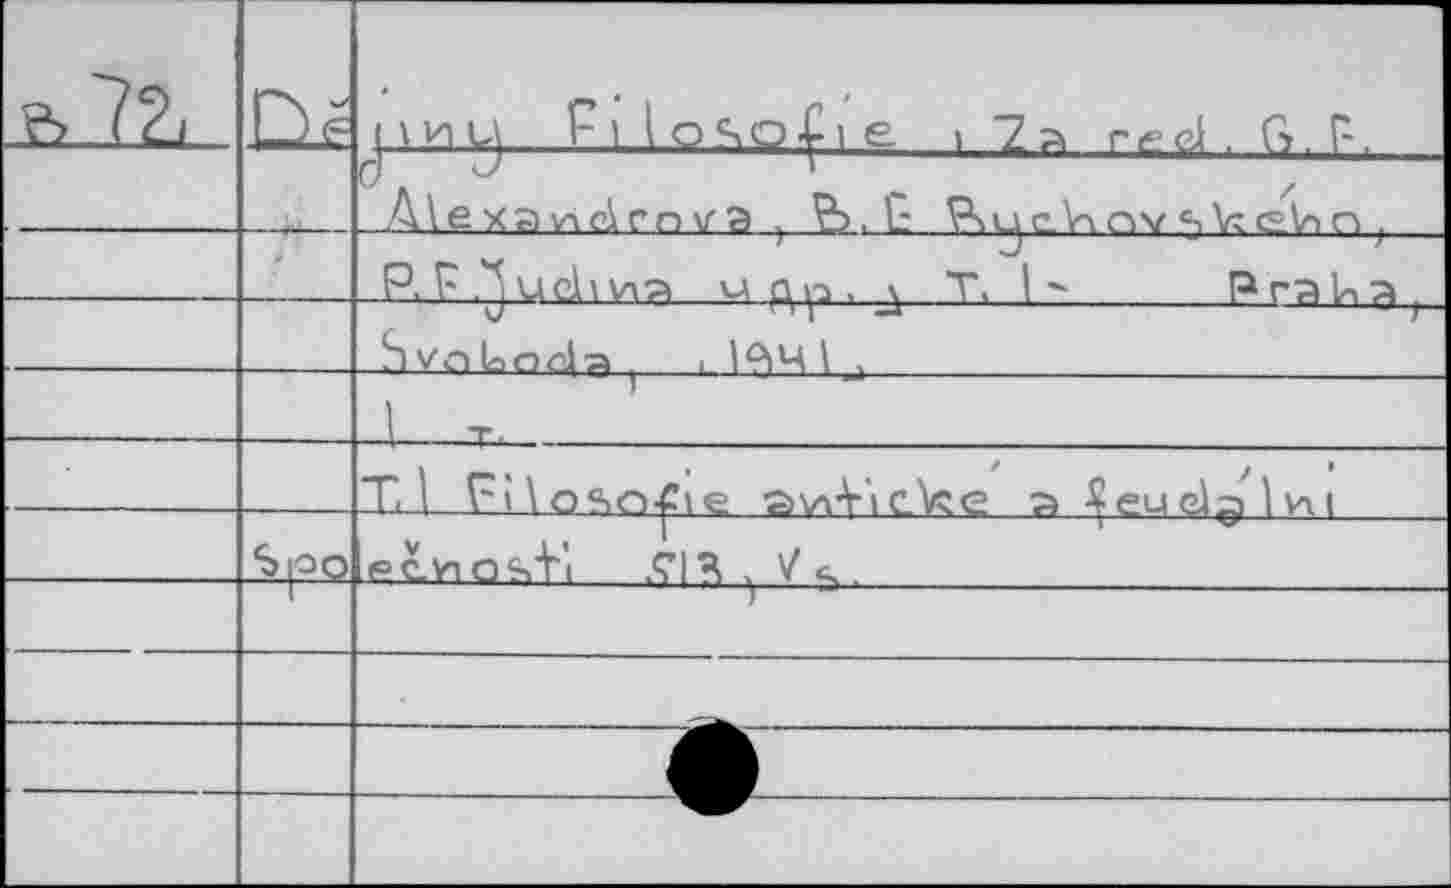 в 72 Dějiny Filosofie, Za red. G.F.
Alexandrova, B.E Bychovského,
P.F. Judina и др., T. 1- Praha,
Svoboda,
1 т.
T.1 Filosofie antické a feudální
společnosti 513, Vs.